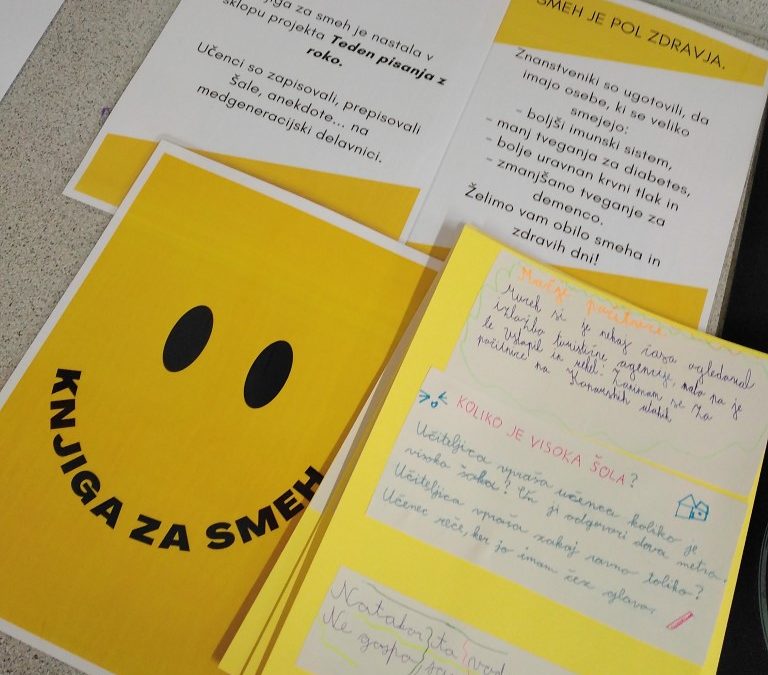 jiga za smeh je nastala v
sklopu projekta Teden pisanja z
roko.
Učenci so zapisovali, prepisovali
šale, anekdote... na
medgeneracijski delavnici.
SMEH JE POL ZDRAVJA.
Znanstveniki so ugotovili, da
imajo osebe, ki se veliko
smejejo:
- boljši imunski sistem,
- manj tveganja za diabetes,
- bolje uravnan krvni tlak in
- zmanjšano tveganje za
demenco.
Želimo vam obilo smeha in
zdravih dni!
KNJIGA ZA SMEH
Mačje počitnice
Murek si je nekaj časa ogledoval
izložbo turistične agencije, nato pa je
le vstopil in rekel: Zanimam se za
počitnice na Kanarskih otokih
KOLIKO JE VISOKA ŠOLA?
Učiteljica vpraša učenca koliko je
visoka šola? On ji odgovori dva metra.
Učiteljica vpraša zakaj ravno toliko?
Učenec reče, ker jo imam čez glavo.
Natakar, ta
Ne gospa,